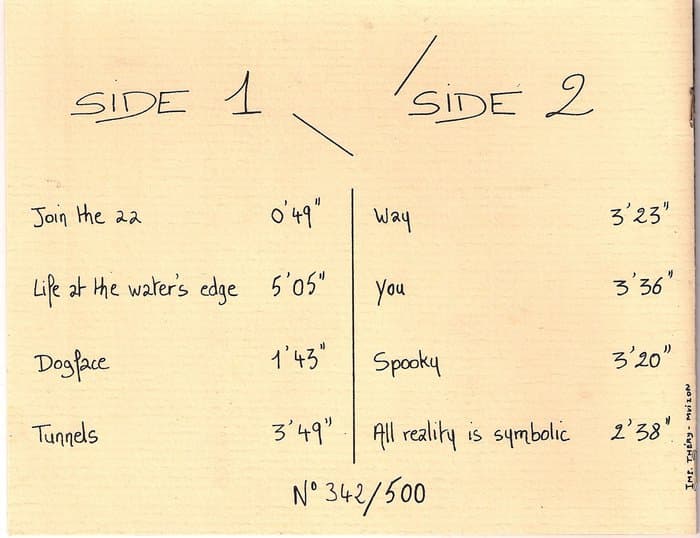 SIDE 1
Join the 22 0'49"
Life at the water's edge 5'05"
Dogface 1'43"
Tunnels 3'49"
SIDE 2
Way 3'23"
You 3'36"
Spooky 3'20"
All reality is symbolic 2'38"
N° 342/500
IMP. THÉRY - MUIZON